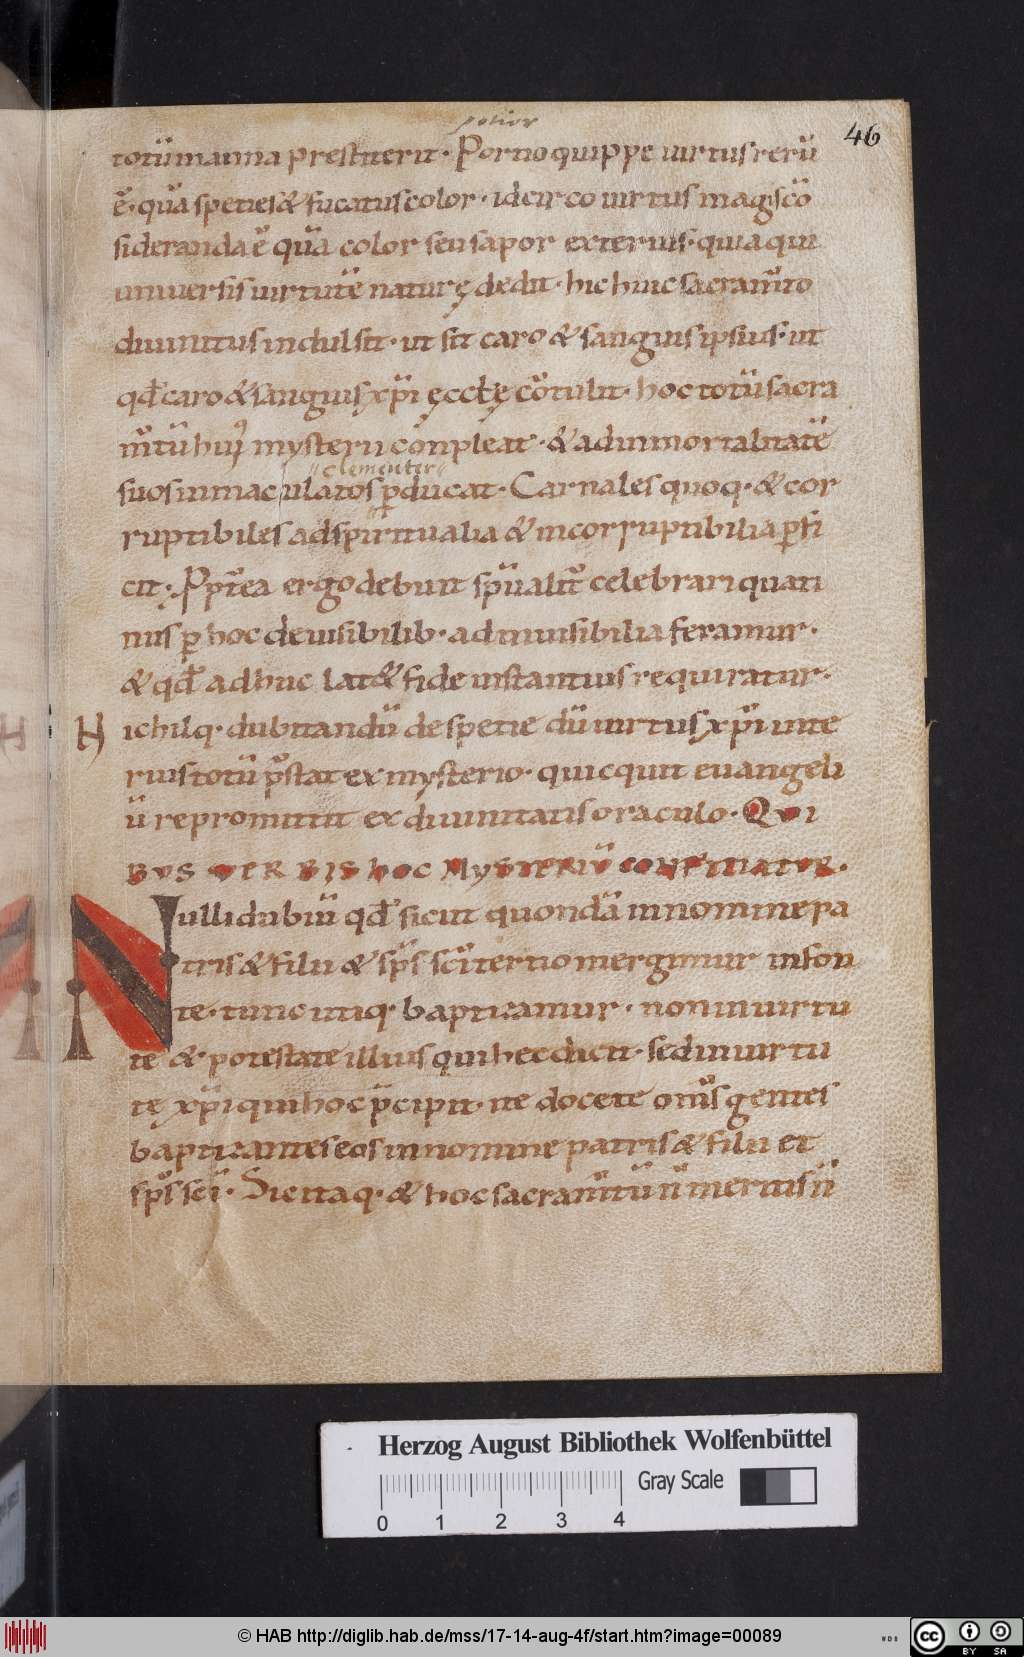 potior
46
totū manna prestiterit · Portio quippe uirtus rerū
ē · quā speties & fucatus color · idcirco uirtus magis cō
sideranda ē quā color seu sapor exterius · quia qui
uniuersis uirtutē naturę dedit · hic huic sacram̄to
diuinitus indulsit · ut sit caro & sanguis ipsius · ut
qd̄ caro & sanguis xp̄i ęccłę cōtulit · hoc totū sacra
m̄tū hui' mysterii conpleat · & ad inmortalitatē
clementer
suos inmaculatos p̱ducat · Carnales quoq · & cor
ruptibiles ad spiritualia & incorruptibilia p̱fi
cit · Ppt̄ea ergo debuit spūalit̄ celebrari quati
nus p̱ hoc de uisibilib · ad inuisibilia feramur ·
& qd̄ adhuc lat& fide instantius requiratur ·
H ichilq · dubitandū de spetie dū uirtus xp̄i inte
rius totū p̄stat ex mysterio · quicquit euangeli
ū repromittit ex diuinitatis oraculo · QVI
BVS VERBIS hOC MYSTERIŪ CONFITIATVR ·
Nulli dubiū qd̄ sicut quondā in nomine pa
tris & filii & sp̄s sc̄i tertio mergimur in fon
te · tunc utiq · baptizamur · non in uirtu
te & potestate illius qui hec dicit · sed in uirtu
tę xp̄i qui hoc p̄cipit · ite docete om̄s gentes
baptizantes eos in nomine patris & filii et
sp̄s sc̄i · Sic itaq · & hoc sacram̄tū n̄ meritis n̄
Herzog August Bibliothek Wolfenbüttel
Gray Scale
0 1 2 3 4
© HAB http://diglib.hab.de/mss/17-14-aug-4f/start.htm?image=00089
WDB
cc BY SA